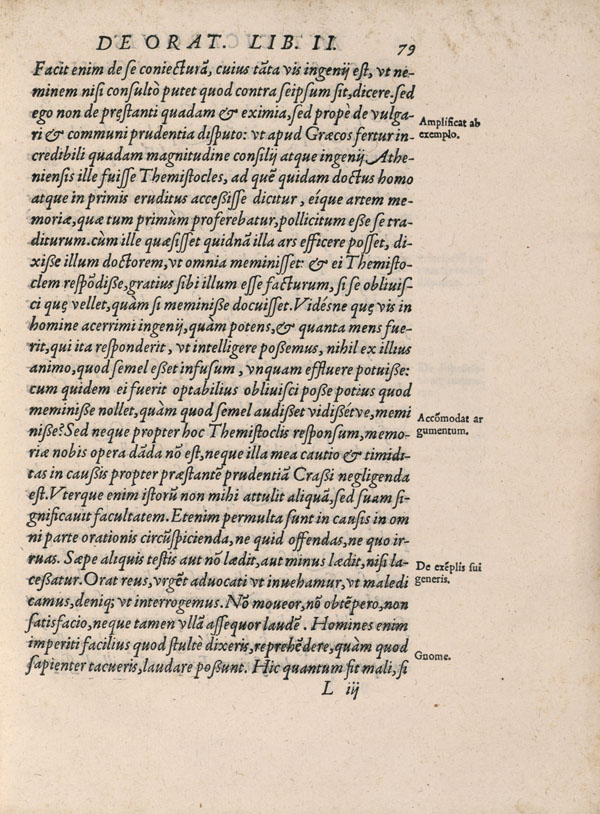 DE ORAT. LIB. II. 79
Facit enim de se coniecturā, cuius tāta vis ingenij est, vt ne-
minem nisi consultò putet quod contra seipsum sit, dicere. sed
ego non de prestanti quadam & eximia, sed propè de vulga-
ri & communi prudentia disputo: vt apud Græcos fertur in-
credibili quadam magnitudine consilij atque ingenij Athe-
niensis ille fuisse Themistocles, ad quē quidam doctus homo
atque in primis eruditus accessisse dicitur, eíque artem me-
moriæ, quæ tum primùm proferebatur, pollicitum esse se tra-
diturum. cùm ille quæsisset quidnā illa ars efficere posset, di-
xisse illum doctorem, vt omnia meminisset: & ei Themisto-
clem respōdisse, gratius sibi illum esse facturum, si se obliuis-
ci quę vellet, quàm si meminisse docuisset. Vidésne quę vis in
homine acerrimi ingenij, quàm potens, & quanta mens fue-
rit, qui ita responderit, vt intelligere possemus, nihil ex illius
animo, quod semel esset infusum, vnquam effluere potuisse:
cum quidem ei fuerit optabilius obliuisci posse potius quod
meminisse nollet, quàm quod semel audisset vidissetve, memi
nisse? Sed neque propter hoc Themistoclis responsum, memo-
riæ nobis opera dāda nō est, neque illa mea cautio & timidi-
tas in caussis propter præstantē prudentiā Crassi negligenda
est. Vterque enim istorū non mihi attulit aliquā, sed suam si-
gnificauit facultatem. Etenim permulta sunt in causis in om
ni parte orationis circūspicienda, ne quid offendas, ne quo ir-
ruas. Sæpe aliquis testis aut nō lædit, aut minus lædit, nisi la-
cessatur. Orat reus, vrgēt aduocati vt inuehamur, vt maledi
camus, deniq; vt interrogemus. Nō moueor, nō obtēpero, non
satisfacio, neque tamen vllā assequor laudē. Homines enim
imperiti facilius quod stultè dixeris, reprehēdere, quàm quod
sapienter tacueris, laudare possunt. Hic quantum sit mali, si
L iij
Amplificat ab
exemplo.
Accōmodat ar
gumentum.
De exēplis sui
generis.
Gnome.